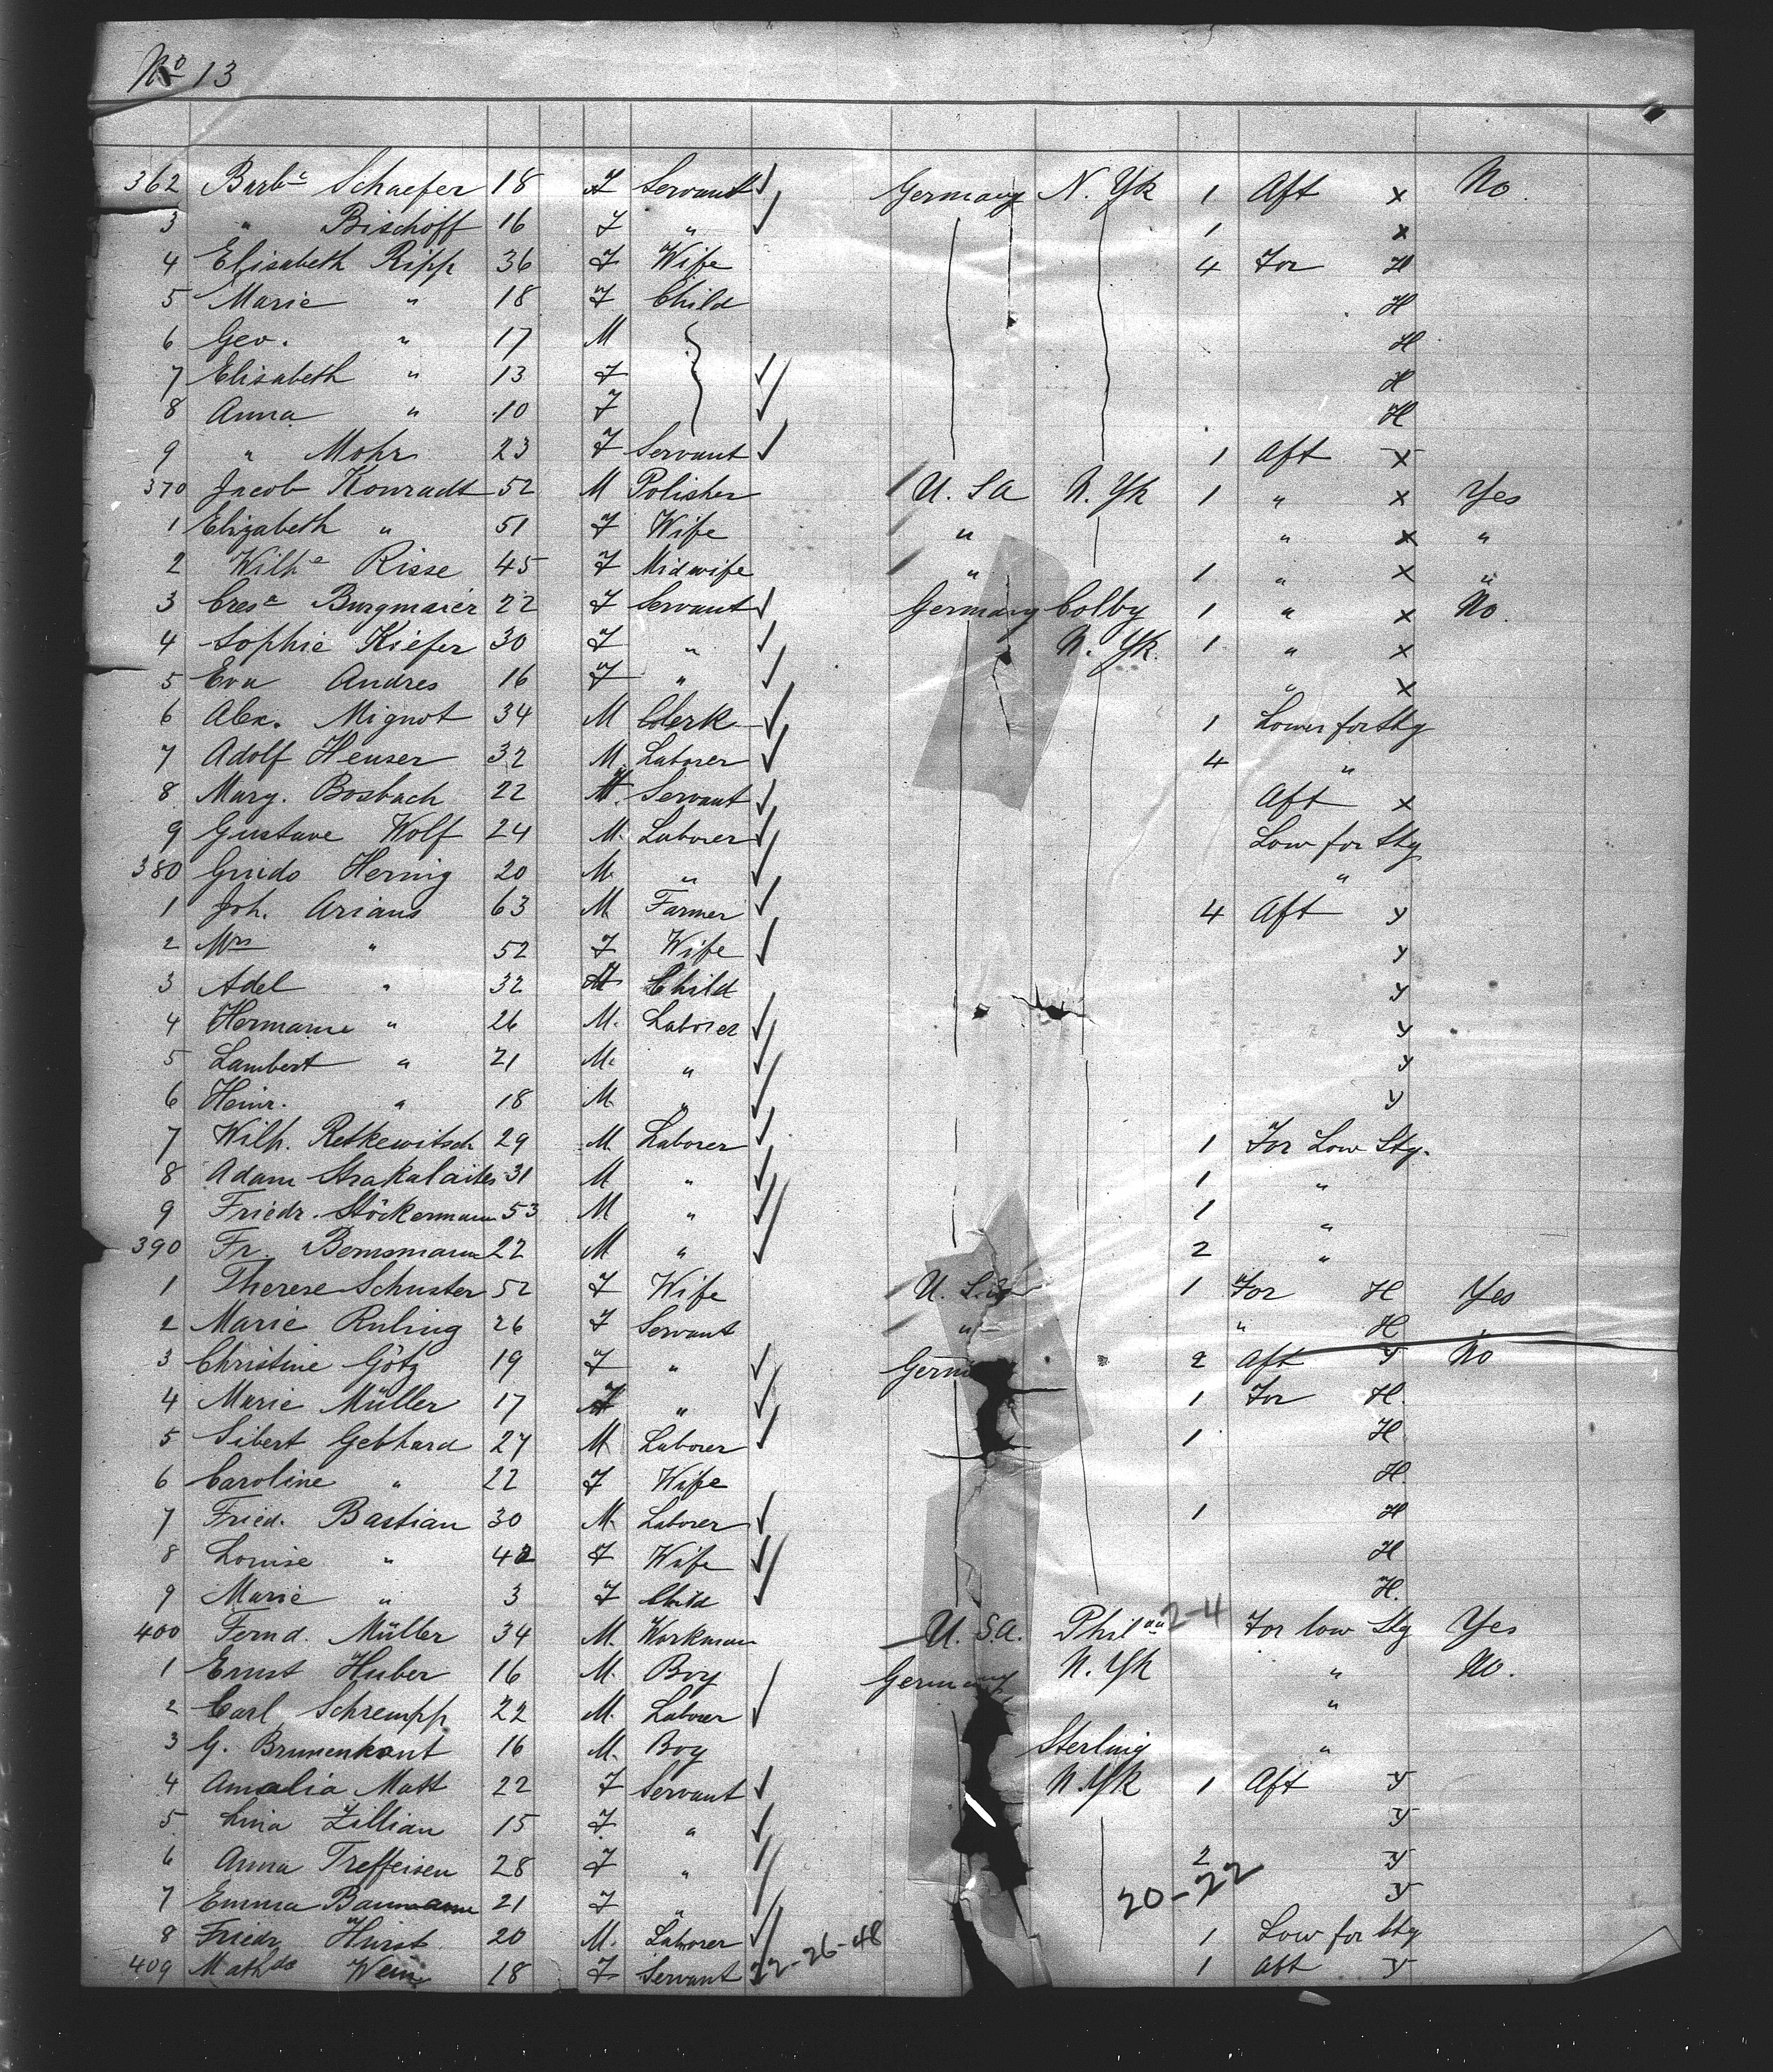 No 13
362 Barba Schaefer 18 F Servant Germany N. Yk 1 Aft x No.
3 " Bischoff 16 F " 1 x
4 Elisabeth Ripp 36 F Wife 4 For H
5 Marie " 18 F Child H
6 Geo. " 17 M H
7 Elisabeth " 13 F H
8 Anna " 10 F H
9 " Mohr 23 F Servant 1 Aft x
370 Jacob Konradt 52 M Polisher U. S A N. Yk 1 " x Yes
1 Elizabeth " 51 F Wife " " x "
2 Wilhe Risse 45 F Midwife " 1 " x "
3 Cresa Burgmaier 22 F Servant Germany Colby 1 " x No.
4 Sophie Kiefer 30 F " N. Yk. 1 " x
5 Eva Andres 16 F " " x
6 Alex. Mignot 34 M Clerk 1 Lower for Stg
7 Adolf Heuser 32 M. Laborer 4 "
8 Marg. Bosbach 22 Servant Aft x
9 Gustave Wolf 24 M. Laborer Low for Stg
380 Guido Hering 20 M. " "
1 Joh. Arians 63 M Farmer 4 Aft y
2 Mrs " 52 F Wife y
3 Adel " 32 Child y
4 Hermann " 26 M. Laborer y
5 Lambert " 21 M. " y
6 Heinr. " 18 M " y
7 Wilh. Retkewitsch 29 M. Laborer 1 For Low Stg.
8 Adam Strakalaites 31 M " 1 "
9 Friedr. Stöckermann 53 M " 1 "
390 Fr. Bemsmann 22 M " 2 "
1 Therese Schuster 52 F Wife U. S. 1 For H Yes
2 Marie Ruling 26 F Servant " " H "
3 Christine Götz 19 F " Germ 2 Aft y No
4 Marie Müller 17 F " 1 For H.
5 Sibert Gebhard 27 M Laborer 1 H
6 Caroline " 22 F Wife H.
7 Fried. Bastian 30 M. Laborer 1 H
8 Louise " 42 F Wife H
9 Marie " 3 F Child H.
400 Fernd. Müller 34 M. Workman U. S. A. Phil 2-4 For low Stg Yes
1 Ernst Huber 16 M. Boy Germany N. Yk " No.
2 Carl Schrempp 22 M. Laborer "
3 G. Brunenkant 16 M. Boy Sterling "
4 Amalia Matt 22 F Servant N. Yk 1 Aft y
5 Lina Zillian 15 F. " y
6 Anna Treffeisen 28 F " 2 y
7 Emma Baumann 21 F " 20-22 y
8 Friedr Hurst 20 M. Laborer 1 Low for Stg
409 Mathde Wein 18 F Servant 22-26-48 1 Aft y